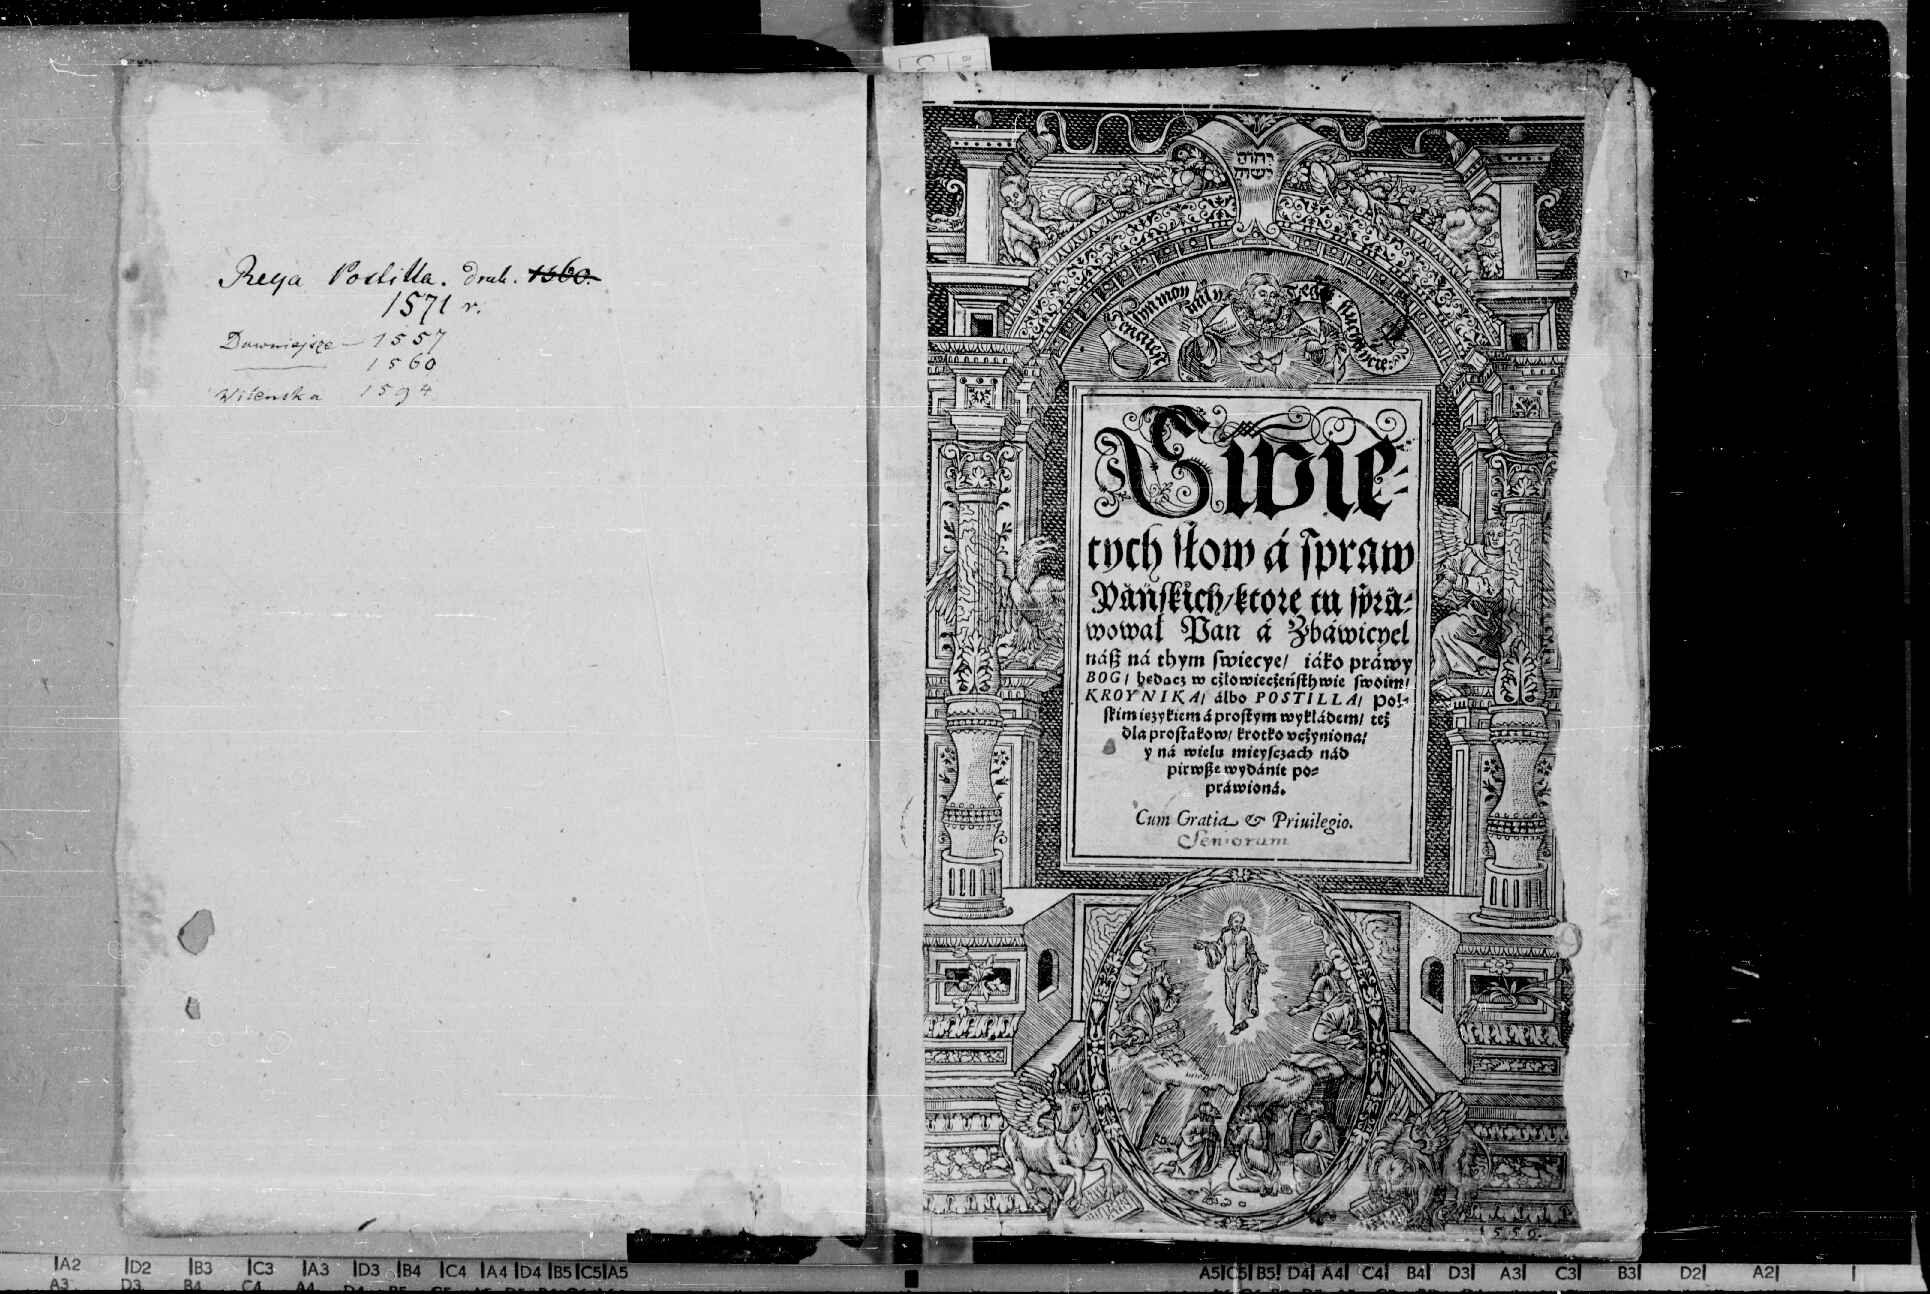 Reya Postilla. druk. 1560.
1571 r.
Dawniejsze — 1557
1560
Wileńska 1594
יהוה
ישוה
Ten ci iest syn moy miły Tego słuchaycie:
Swię-
tych słow á spraw
Páńskich/ ktore tu sprá-
wował Pan á Zbáwicyel
náß ná thym swiecye/ iáko práwy
BOG/ będącz w cżłowiecżeństhwie swoim/
KROYNIKA/ álbo POSTILLA/ Pol-
skim ięzykiem á prostym wykłádem/ też
dla prostakow/ krotko vcżyniona/
y ná wielu mieysczach nád
pirwße wydánie po-
práwioná.
Cum Gratia & Priuilegio.
Seniorum
1556.
A2 D2 B3 C3 A3 D3 B4 C4 A4 D4 B5 C5 A5
A5 C5 B5 D4 A4 C4 B4 D3 A3 C3 B3 D2 A2
A3 D3 B4 C4 A4